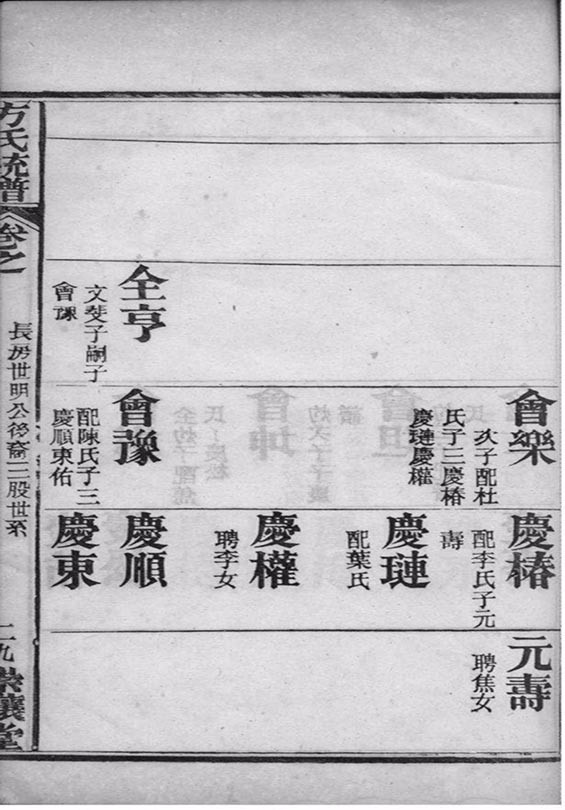 會樂
次子配杜
氏子三慶椿
慶璉慶權
慶椿
配李氏子元
壽
元壽
聘焦女
慶璉
配葉氏
慶權
聘李女
全亨
文斐子嗣子
會豫
會豫
配陳氏子三
慶順東佑
慶順
慶東
方氏統譜
卷之
長房世明公後裔三股世系
二九
堂